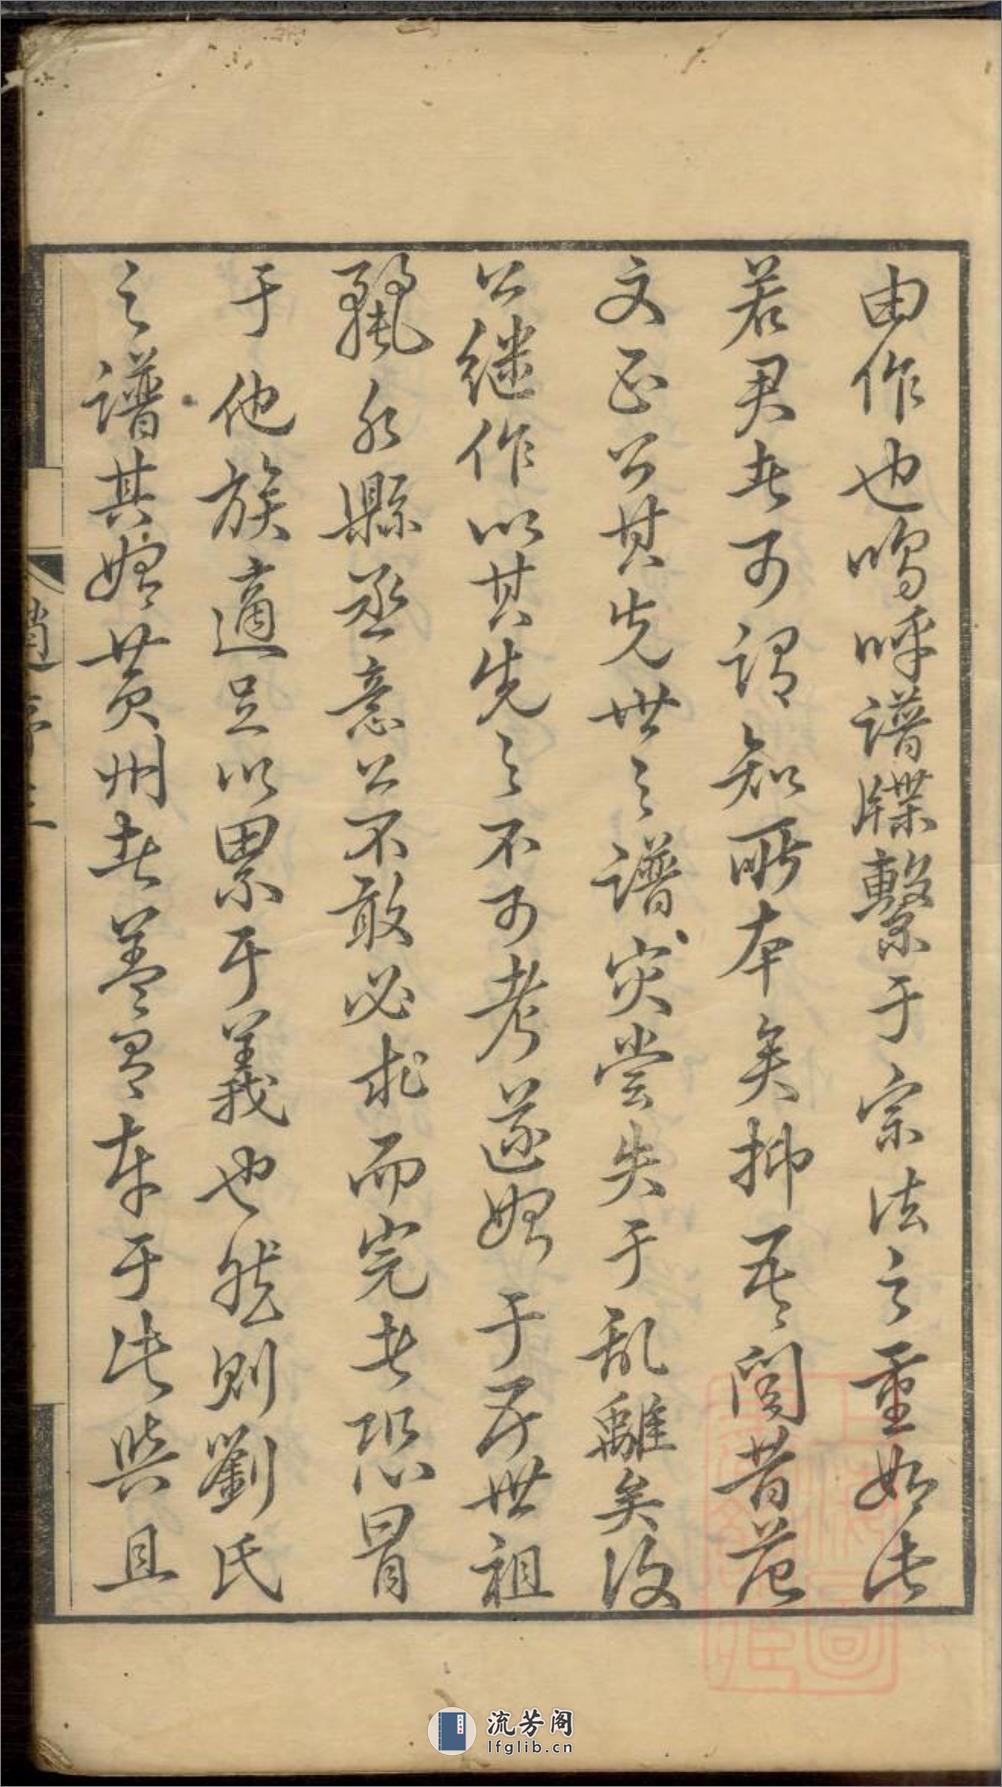 由作也嗚呼譜牒繫于宗法之重如此
若君者可謂知所本矣抑吾聞昔范
文正公其先世之譜实嘗失于乱離矣後
公继作以其先之不可考遂始于五世祖
麗水縣丞意公不敢必求而完者恐冒
于他族適足以累乎義也然則劉氏
之譜其始黄州者盖有本于此與且
譜序三
流芳阁
lfglib.cn